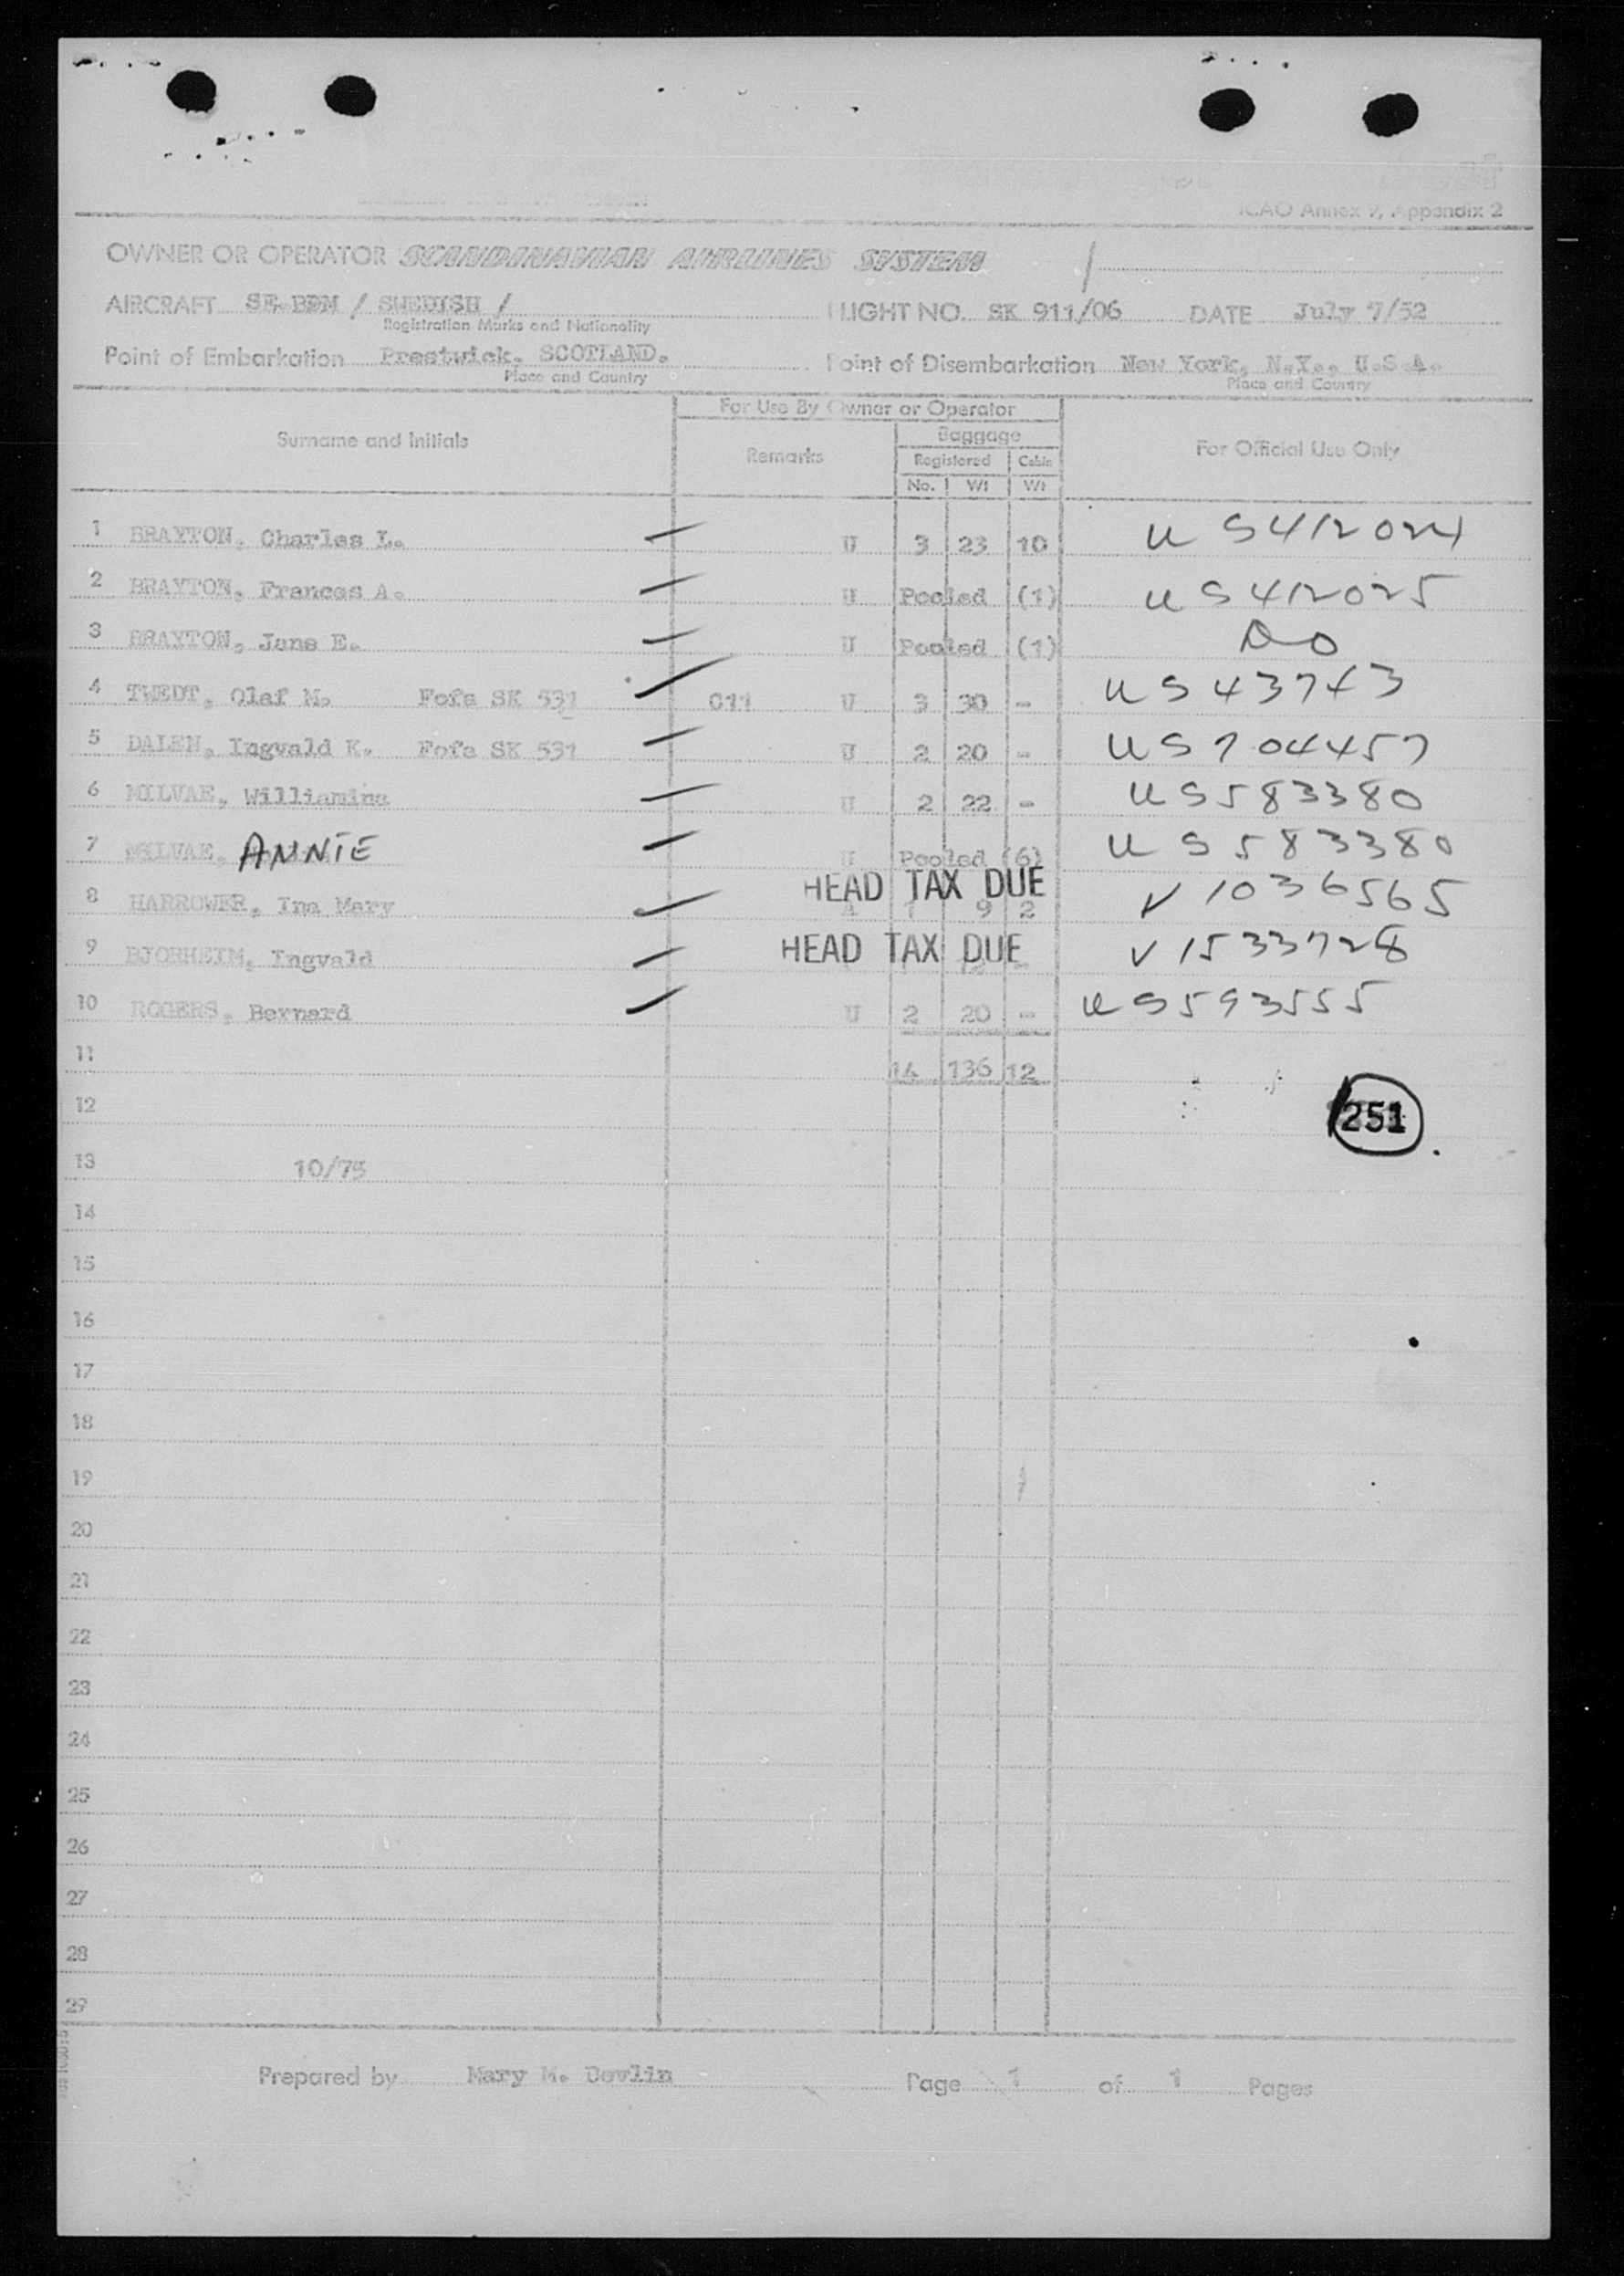 ICAO Annex 9, Appendix 2
OWNER OR OPERATOR SCANDINAVIAN AIRLINES SYSTEM /
AIRCRAFT SE-BDM / SWEDISH / FLIGHT NO. SK 911/06 DATE July 7/52
Registration Marks and Nationality
Point of Embarkation Prestwick, SCOTLAND. Point of Disembarkation New York, N.Y., U.S.A.
Place and Country Place and Country
For Use By Owner or Operator
Surname and Initials Remarks Baggage For Official Use Only
Registered Cabin
No. Wt Wt
1 BRAYTON, Charles L. U 3 23 10 US412024
2 BRAYTON, Frances A. U Pooled (1) US412025
3 BRAYTON, Jane E. U Pooled (1) DO
4 TWEDT, Olaf M. Fofa SK 531 C11 U 3 30 - US43743
5 DALEN, Ingvald K. Fofa SK 531 U 2 20 - US704457
6 MILVAE, Williamina U 2 22 - US583380
7 MILVAE, ANNIE U Pooled (6) US583380
HEAD TAX DUE
8 HARROWER, Ina Mary A 1 9 2 V1036565
9 BJORHEIM, Ingvald HEAD TAX DUE V1533728
10 ROGERS, Bernard U 2 20 - US593555
11 14 136 12
12 251
13 10/75
14
15
16
17
18
19
20
21
22
23
24
25
26
27
28
29
Prepared by Mary M. Devlin Page 1 of 1 Pages